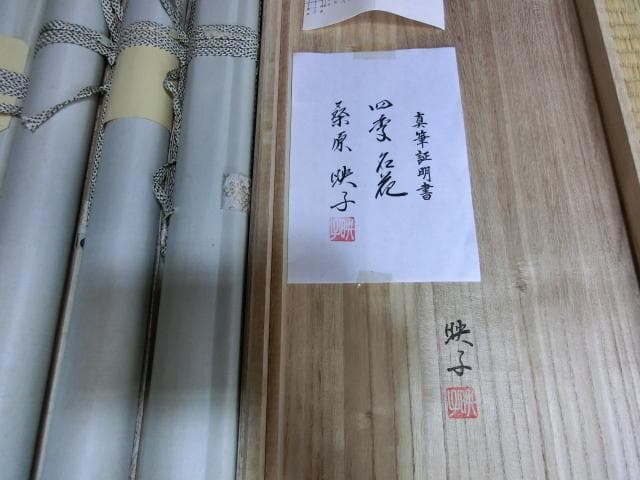 真筆証明書
四季名花
桑原 映子
映子